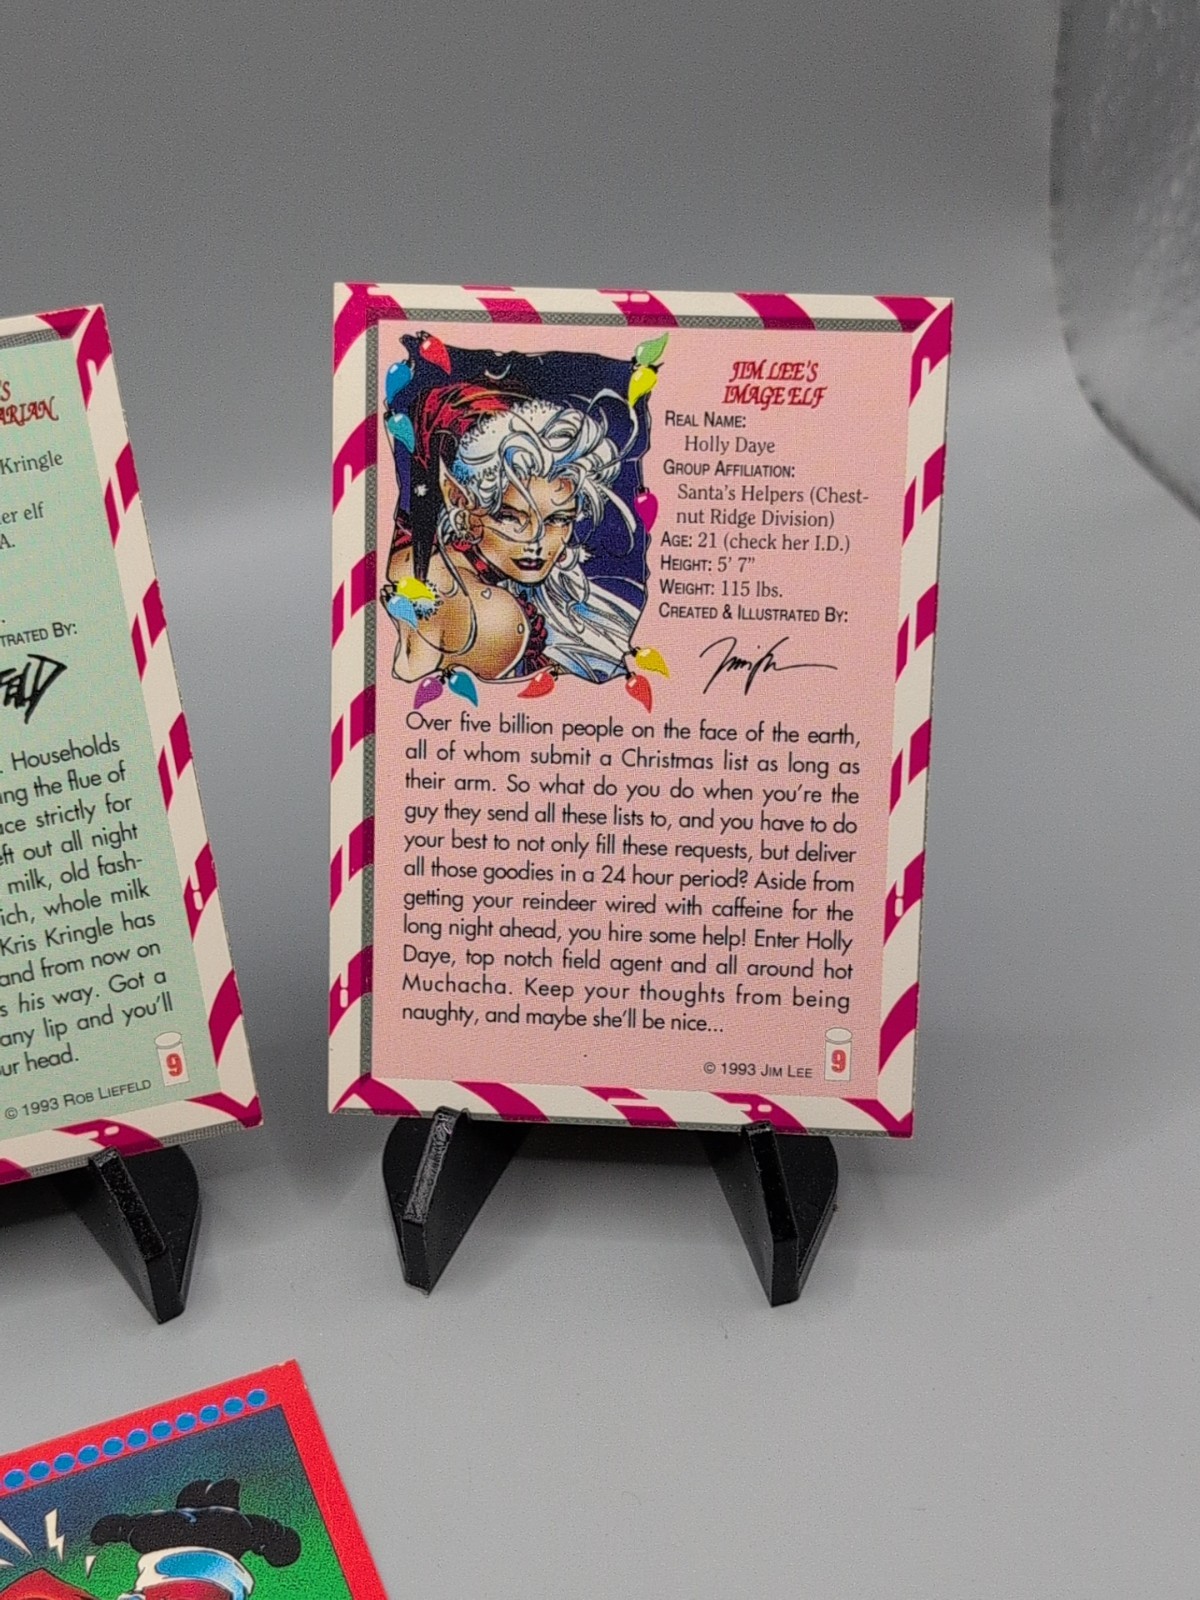 'S
ARIAN
Kringle
er elf
A.
TRATED BY:
FELD
. Households
ing the flue of
ace strictly for
eft out all night
milk, old fash-
ich, whole milk
Kris Kringle has
and from now on
s his way. Got a
any lip and you'll
ur head.
© 1993 ROB LIEFELD
9
JIM LEE'S
IMAGE ELF
REAL NAME:
Holly Daye
GROUP AFFILIATION:
Santa's Helpers (Chest-
nut Ridge Division)
AGE: 21 (check her I.D.)
HEIGHT: 5' 7"
WEIGHT: 115 lbs.
CREATED & ILLUSTRATED BY:
Over five billion people on the face of the earth,
all of whom submit a Christmas list as long as
their arm. So what do you do when you're the
guy they send all these lists to, and you have to do
your best to not only fill these requests, but deliver
all those goodies in a 24 hour period? Aside from
getting your reindeer wired with caffeine for the
long night ahead, you hire some help! Enter Holly
Daye, top notch field agent and all around hot
Muchacha. Keep your thoughts from being
naughty, and maybe she'll be nice...
© 1993 JIM LEE
9